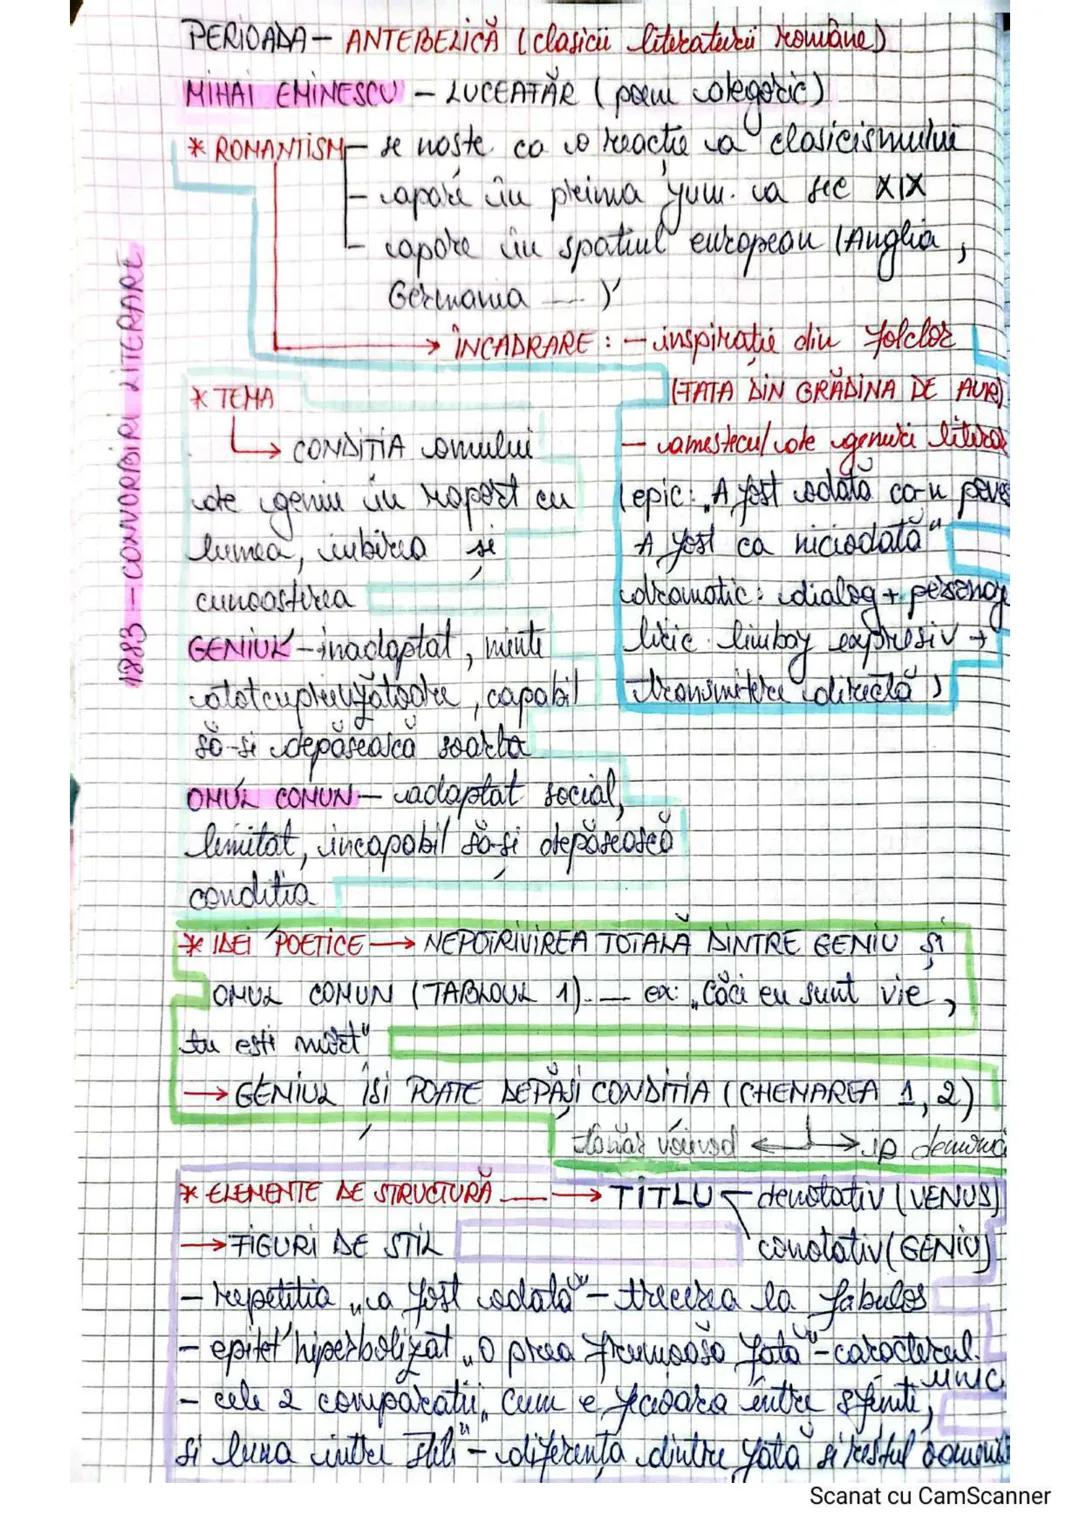 PERIOADA - ANTEBELICĂ (clasicii literaturii române)
MIHAI EMINESCU - LUCEAFĂR (poem alegoric)
* ROMANTISM - se naște ca o reacție a clasicismului
- apare în prima jum. a sec XIX
- apare în spațiul european (Anglia,
Germania ...)
→ ÎNCADRARE: - inspirație din folclor
(FATA DIN GRĂDINA DE AUR)
- amestecul de genuri litera
(epic: „A fost odată ca-n poves
A fost ca niciodată"
dramatic: dialog + personaj
liric limbaj expresiv +
transmitere directă)
1883 - CONVORBIRI LITERARE
* TEMA
→ CONDIȚIA omului
de geniu în raport cu
lumea, iubirea și
cunoașterea
GENIUL - inadaptat, minte
atotcuprinzătoare, capabil
să-și depășească soarta
OMUL COMUN - adaptat social,
limitat, incapabil să-și depășească
condiția
* IDEI POETICE → NEPOTRIVIREA TOTALĂ DINTRE GENIU ȘI
OMUL COMUN (TABLOUL 1) - ex: „Căci eu sunt vie,
tu ești mort"
→ GENIUL ÎȘI POATE DEPĂȘI CONDIȚIA (CHEMAREA 1, 2)
tânăr voievod ← → ip
* ELEMENTE DE STRUCTURĂ → TITLU - denotativ (VENUS)
conotativ (GENIU)
→ FIGURI DE STIL
- repetiția „a fost odată" - trecerea la fabulos
- epitet hiperbolizat „O prea frumoasă fată" - caracterul
unic
- cele 2 comparații „Cum e fecioara între sfinți,
și luna între stele" - diferența dintre fată și restul
Scanat cu CamScanner